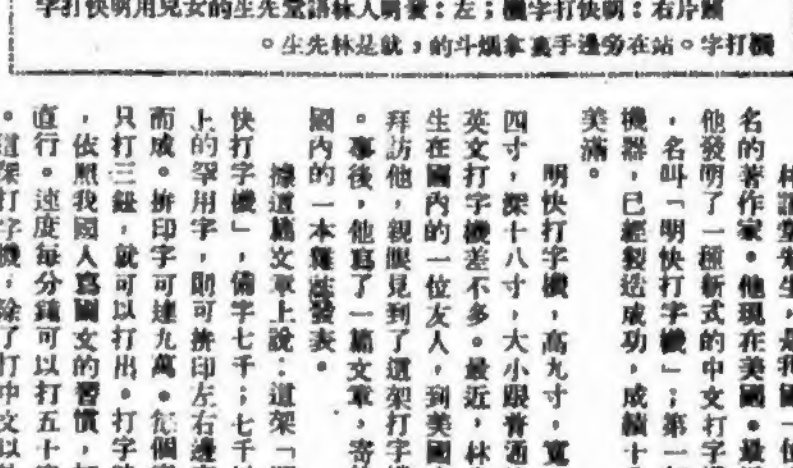 照片右:明快打字機;左:發明人林語堂先生的女兒用明快打字
機打字。站在旁邊手裏拿煙斗的,就是林先生。
林語堂先生,是我國一位
名的著作家。他現在美國。最
他發明了一種新式的中文打字
,名叫「明快打字機」;第一
機器,已經製造成功,成績十
美滿。
明快打字機,高九寸,寬
四寸,深十八寸,大小跟普通
英文打字機差不多。最近,林
生在國內的一位友人,到美國
拜訪他,親眼見到了這架打字機
。事後,他寫了一篇文章,寄
國內的一本雜誌發表。
據這篇文章上說:這架「明
快打字機」,備字七千;七千
上的罕用字,則可拚印左右邊
而成。拚印字可達九萬。每個
只打三鈕,就可以打出。打字
,依照我國人寫國文的習慣,
直行。速度每分鐘可以打五十
。這架打字機,除了打中文以